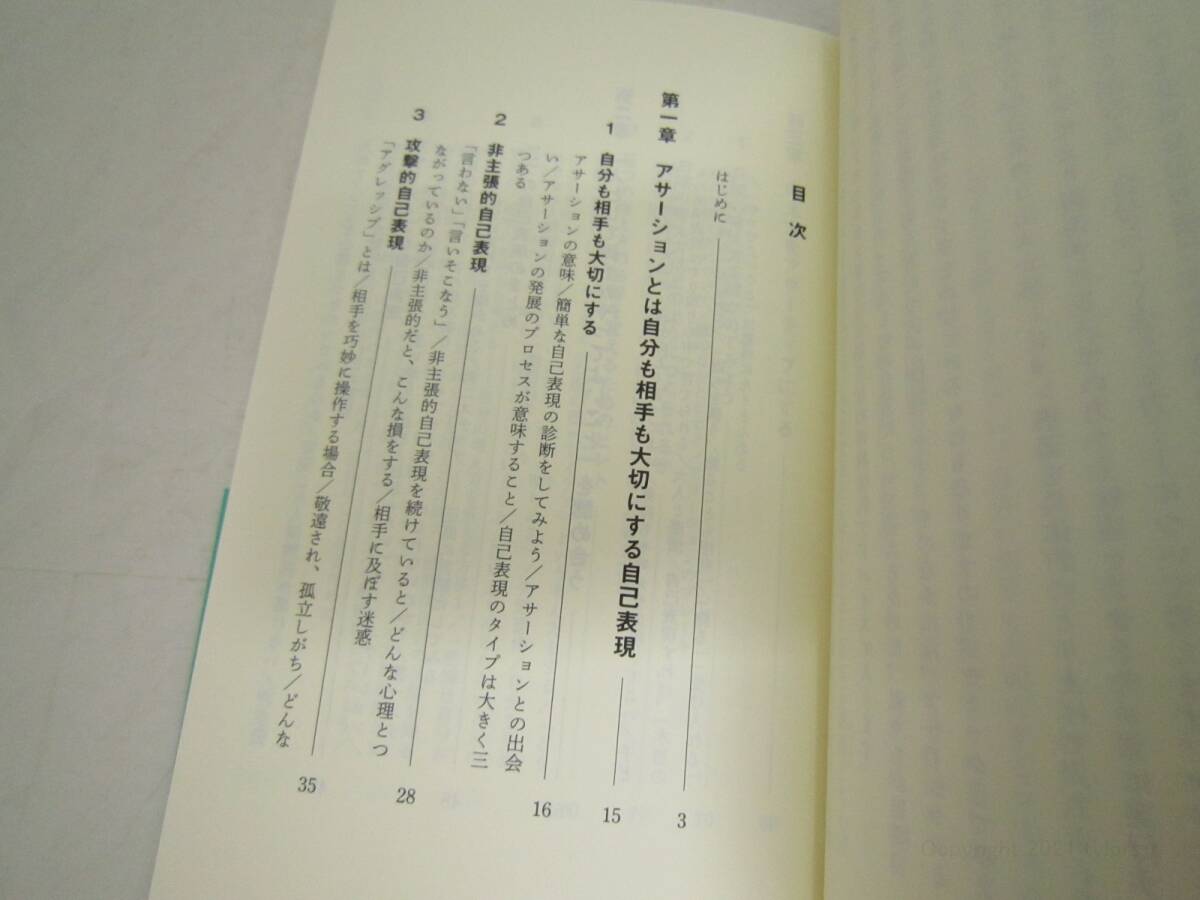 目次
はじめに 3
第一章 アサーションとは自分も相手も大切にする自己表現 15
1 自分も相手も大切にする 16
アサーションの意味/簡単な自己表現の診断をしてみよう/アサーションとの出会
い/アサーションの発展のプロセスが意味すること/自己表現のタイプは大きく三
つある
2 非主張的自己表現 28
「言わない」「言いそこなう」/非主張的自己表現を続けていると/どんな心理とつ
ながっているのか/非主張的だと、こんな損をする/相手に及ぼす迷惑
3 攻撃的自己表現 35
「アグレッシブ」とは/相手を巧妙に操作する場合/敬遠され、孤立しがち/どんな
Copyright 2021